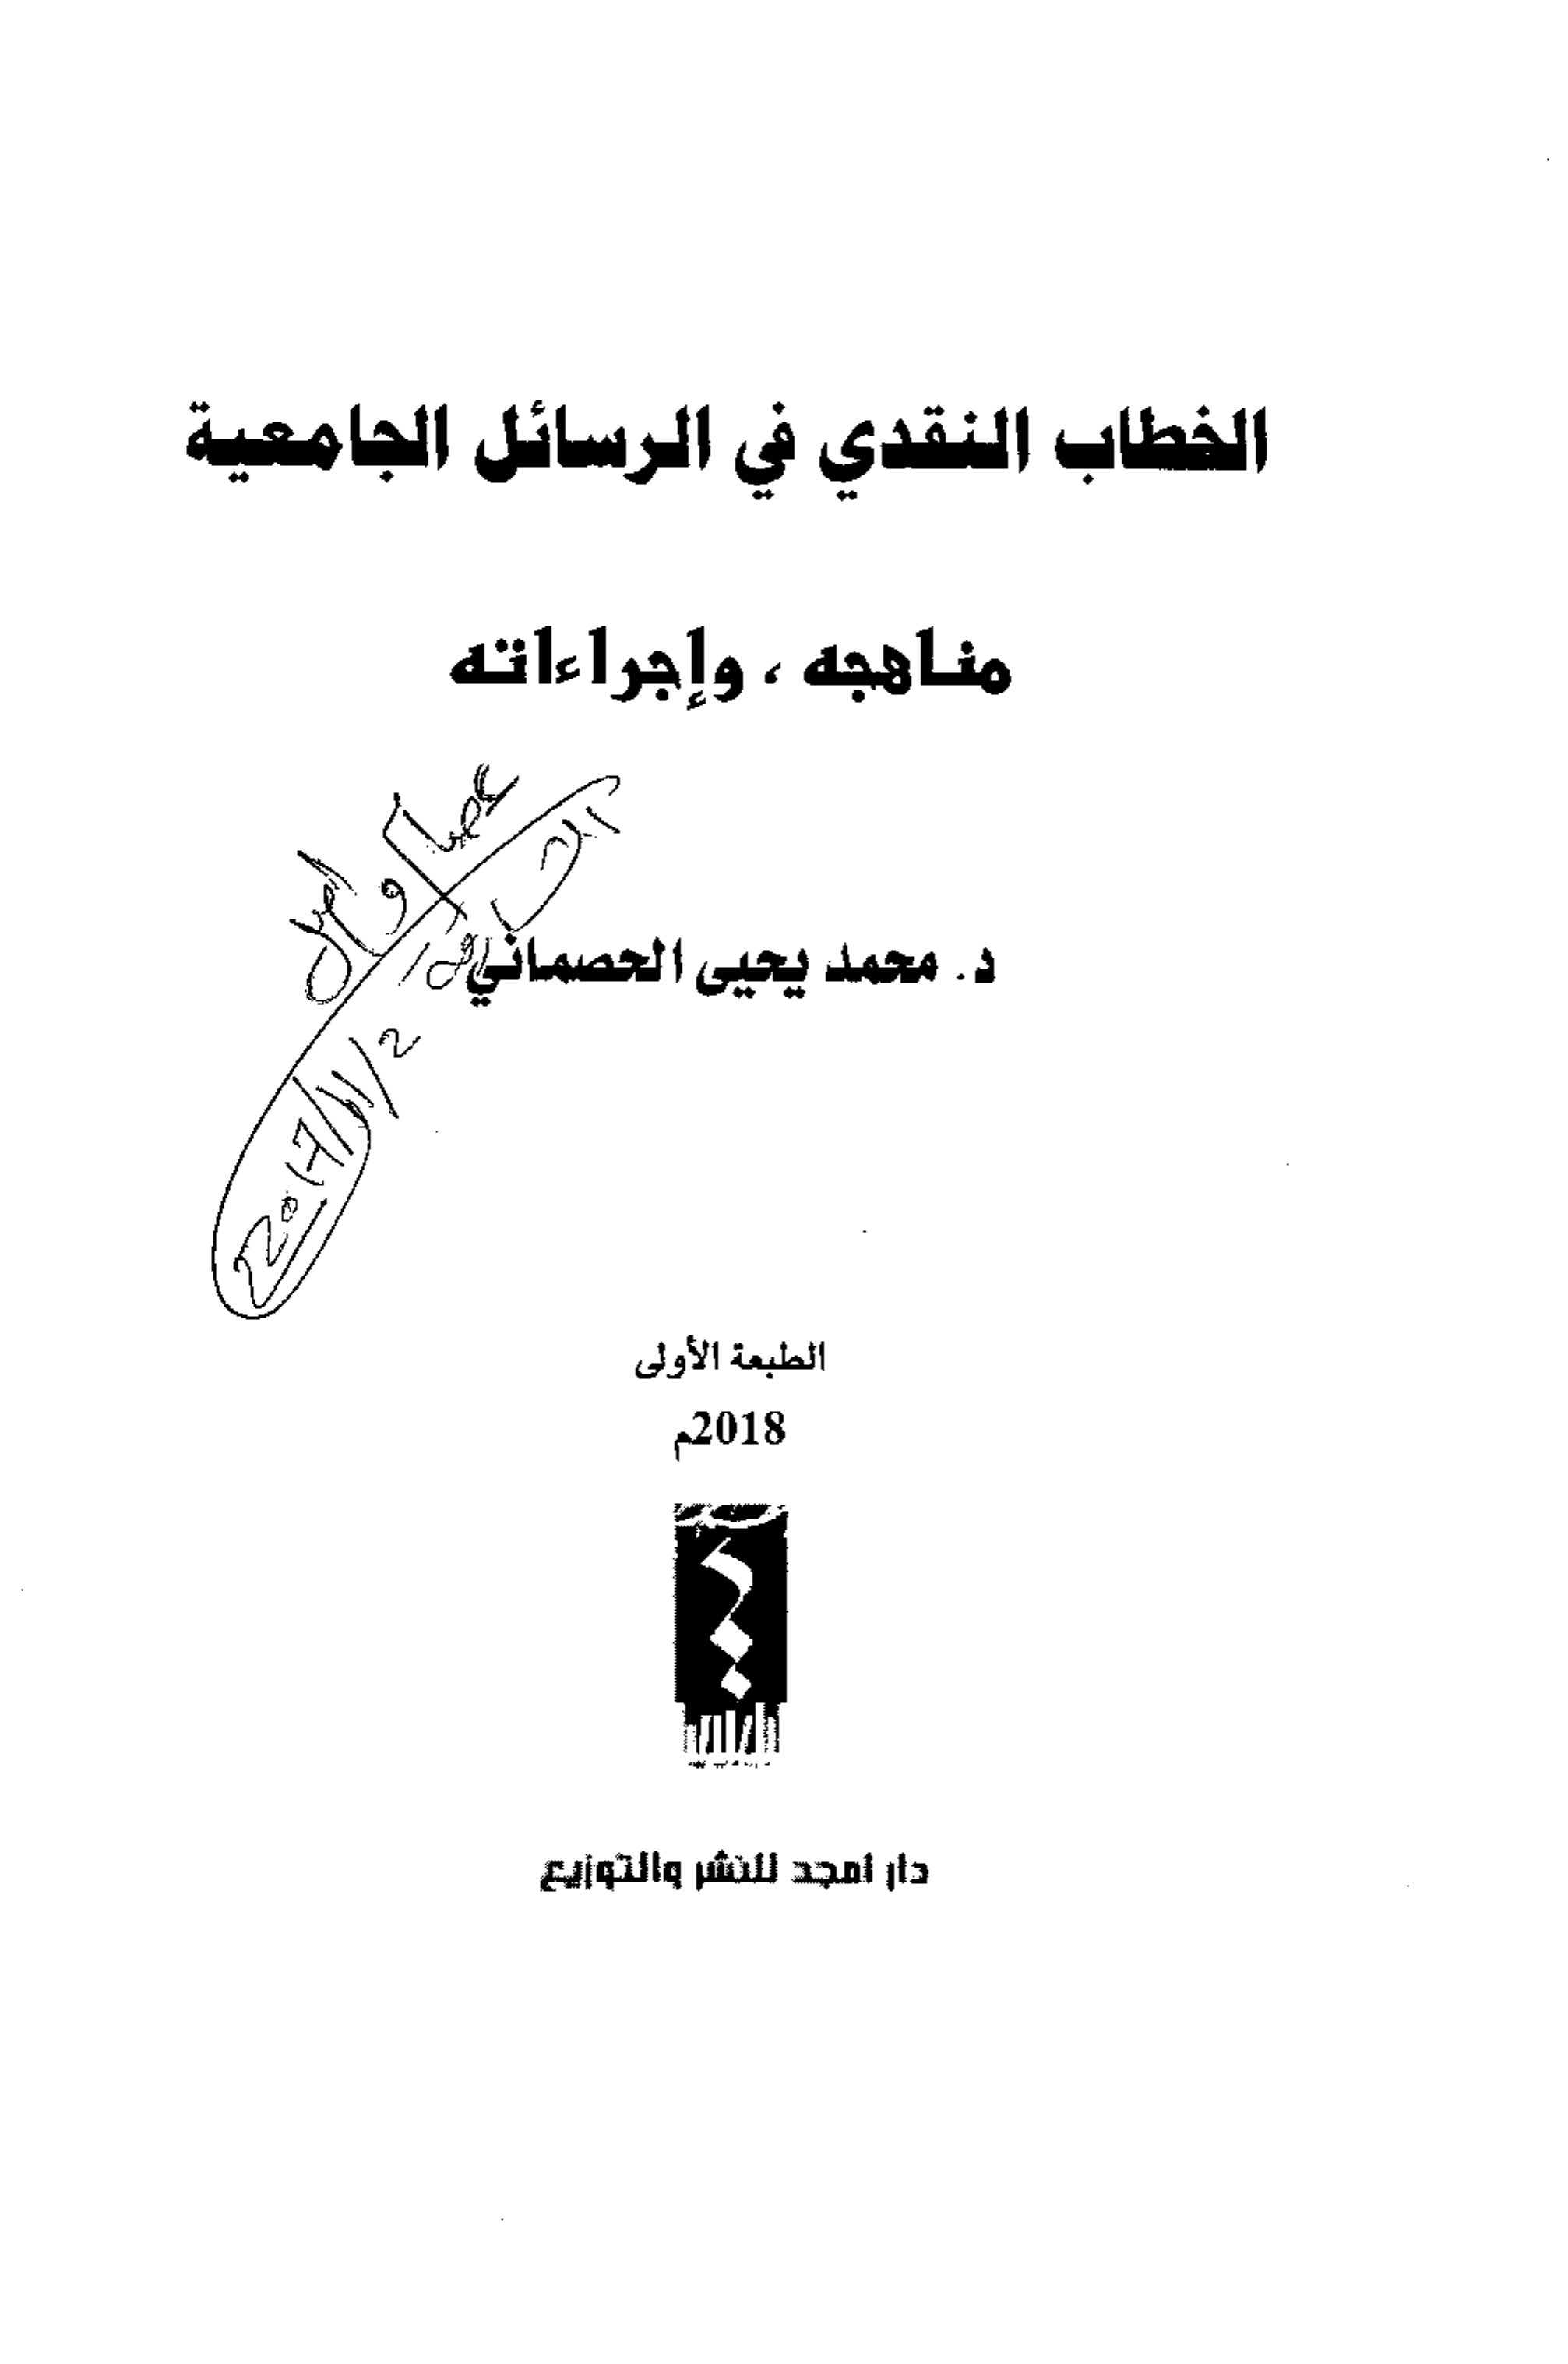 الخطاب النقدي في الرسائل الجامعية
مناهجه ، وإجراءاته
د. محمد يحيى الحصماني
2017/11/2
الطبعة الأولى
2018م
دار امجد للنشر والتوزيع